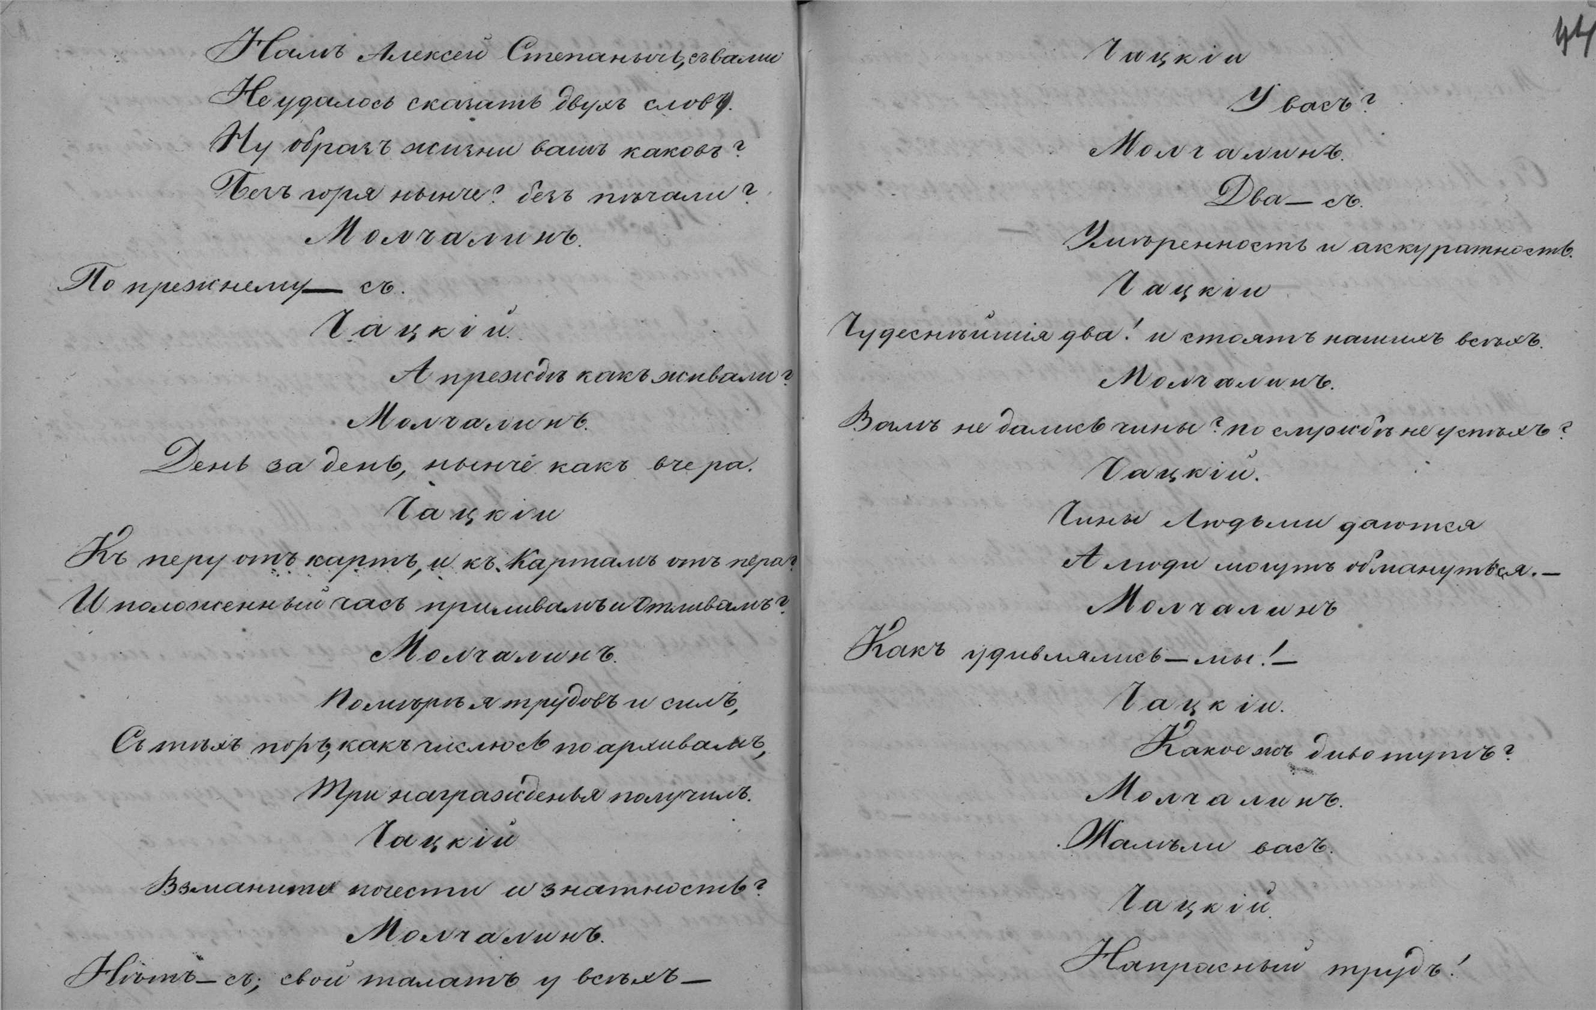 Намъ Алексей Степанычь, съ вами
Не удалось сказать двухъ словъ.
Ну образъ жизни вашъ каковъ?
Безъ горя нынче? безъ печали?
Молчалинъ.
По прежнему — съ.
Чацкій.
А прежде какъ живали?
Молчалинъ.
День за день, нынче какъ вчера.
Чацкій
Къ перу отъ картъ, и къ картамъ отъ пера?
И положенный часъ приливамъ и отливамъ?
Молчалинъ.
По мѣрѣ я трудовъ и силъ,
Съ тѣхъ поръ, какъ числюсь по архивамъ,
Три награжденья получилъ.
Чацкій
Взманили почести и знатность?
Молчалинъ.
Нѣтъ — съ; свой талатъ у всѣхъ —
Чацкій
У васъ?
Молчалинъ.
Два — съ.
Умѣренность и аккуратность.
Чацкій
Чудеснѣйшія два! и стоятъ нашихъ всѣхъ.
Молчалинъ.
Вамъ не дались чины? по службѣ не успѣхъ?
Чацкій.
Чины Людьми даются
А люди могутъ обмануться. —
Молчалинъ
Какъ удивлялись — мы! —
Чацкій.
Какое жъ диво тутъ?
Молчалинъ.
Жалѣли васъ.
Чацкій.
Напрасный трудъ!